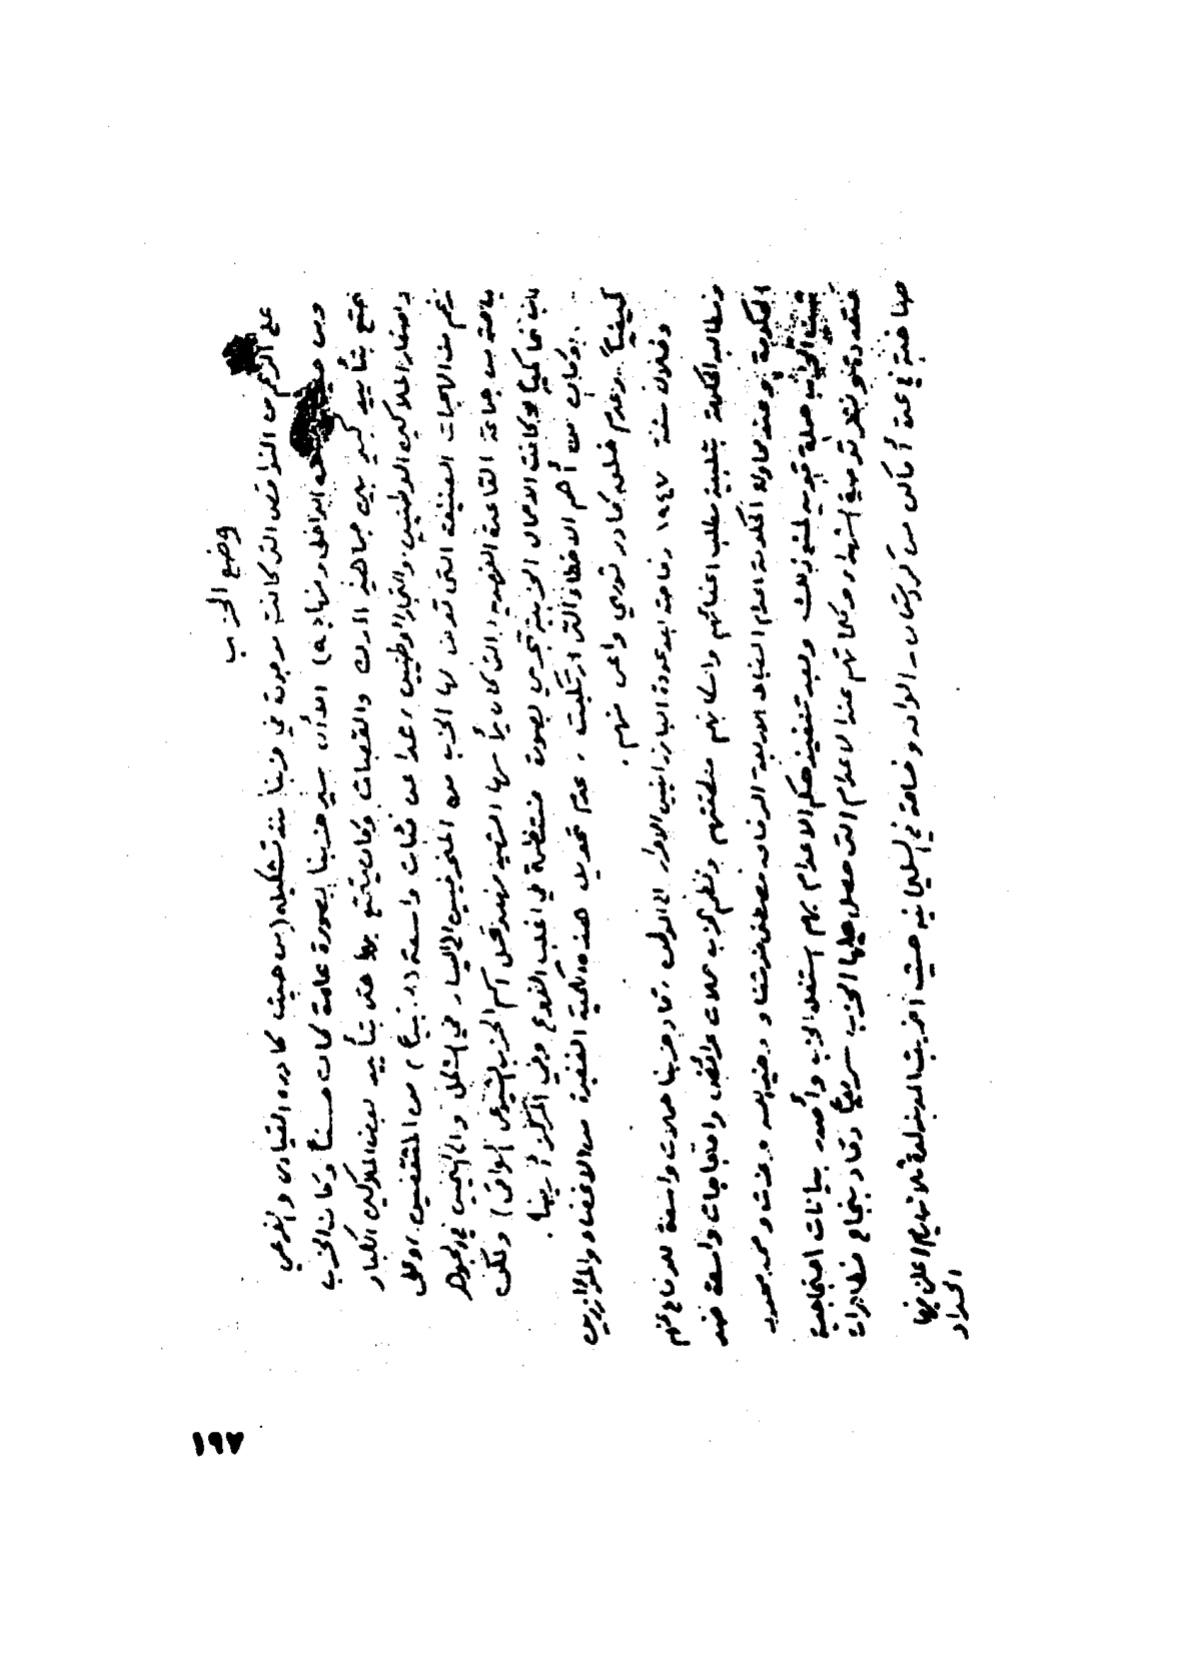 وضع الحزب
على الرغم من النواقص التي كانت موجودة في حزبنا منذ تشكيله (من حيث كادره القيادي والفرعي
ومن حيث الداخلي ومنهاجه) الا أن سير حزبنا بصورة عامة كان حسناً وكان الحزب
يتمتع بتأييد كبير بين جماهير المدن والقصبات وكان يتمتع حتى بتأييد بعض الملاكين الكبار
وصغار الملاكين الوطنيين والتجار الوطنيين، عدا عن فئات واسعة من المثقفين. وعلى
رغم من الهجمات العنيفة التي تعرض لها الحزب من المنحرفين الى اليسار في الشكل والى اليمين في الجوهر
خاصة من جماعة القاعدة التي كان يرأسها الشهيد فهد قبل اسم الحزب الشيوعي العراقي) ولكن
كانت الاعمال الحزبية تجري بصورة منتظمة في اغلب الفروع وفي المركز أيضاً.
وكان من أهم الاخطاء التي ارتكبت، عدم تحويل هذه الكمية الغفيرة من الاعضاء والمؤازرين
كيفياً وعدم خلق كادر ثوري واعي منهم.
وخلال سنة ١٩٤٧ وخاصة بعد عودة البارزانيين الابرار الى العراق، قاد حزبنا حملات واسعة للدفاع عنهم
ومطالبة الحكومة بتلبية مطلب اعانتهم واسكانهم منطقتهم ونظم الحزب حملات عرائض واحتجاجات واسعة ضد
الحكومة وعند محاولة الحكومة اعدام الضباط الاربعة الرفاق مصطفى خوشناو وخيرالله وعزت ومحمد محمود
شن الحزب حملة قوية لمنع ذلك وبعد تنفيذ حكم الاعدام بهم استغل الحزب وأصدر بيانات احتجاجية
متعددة ونشر توصية الشهداء وكلماتهم عند الاعدام التي حصل عليها الحزب سريعاً وقاد بنجاح مظاهرات
صاخبة في عدة أماكن من كردستان - العراق وخاصة في السليمانية حيث اضربت المدينة لمدة ثلاثة ايام اعلن فيها
الحداد
١٩٧